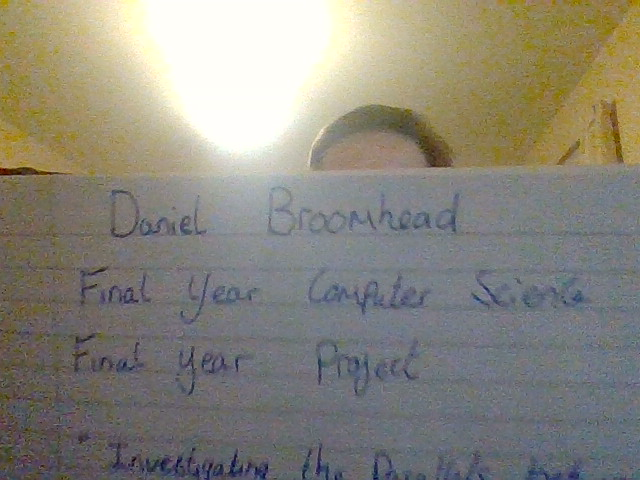 Daniel Broomhead
Final Year Computer Science
Final year Project
" Investigating the Parallels that